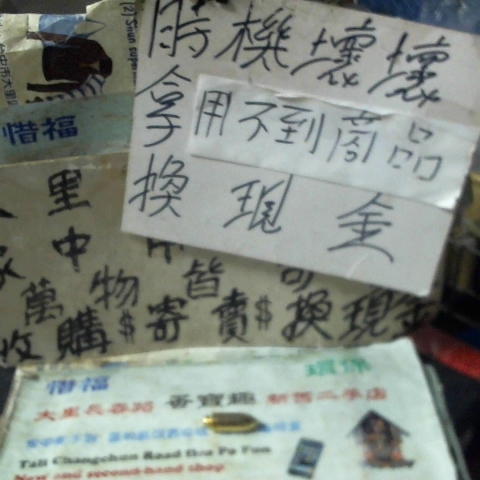 (2) Shun
台中市大里
惜福
時機壞壞
拿用不到商品
換現金
里
家中
萬物皆可
收購$寄賣$換現金
惜福 環保
大里長春路 香寶趣 新舊二手店
Tali Changchun Road Hsa Po Fun
New and second-hand shop